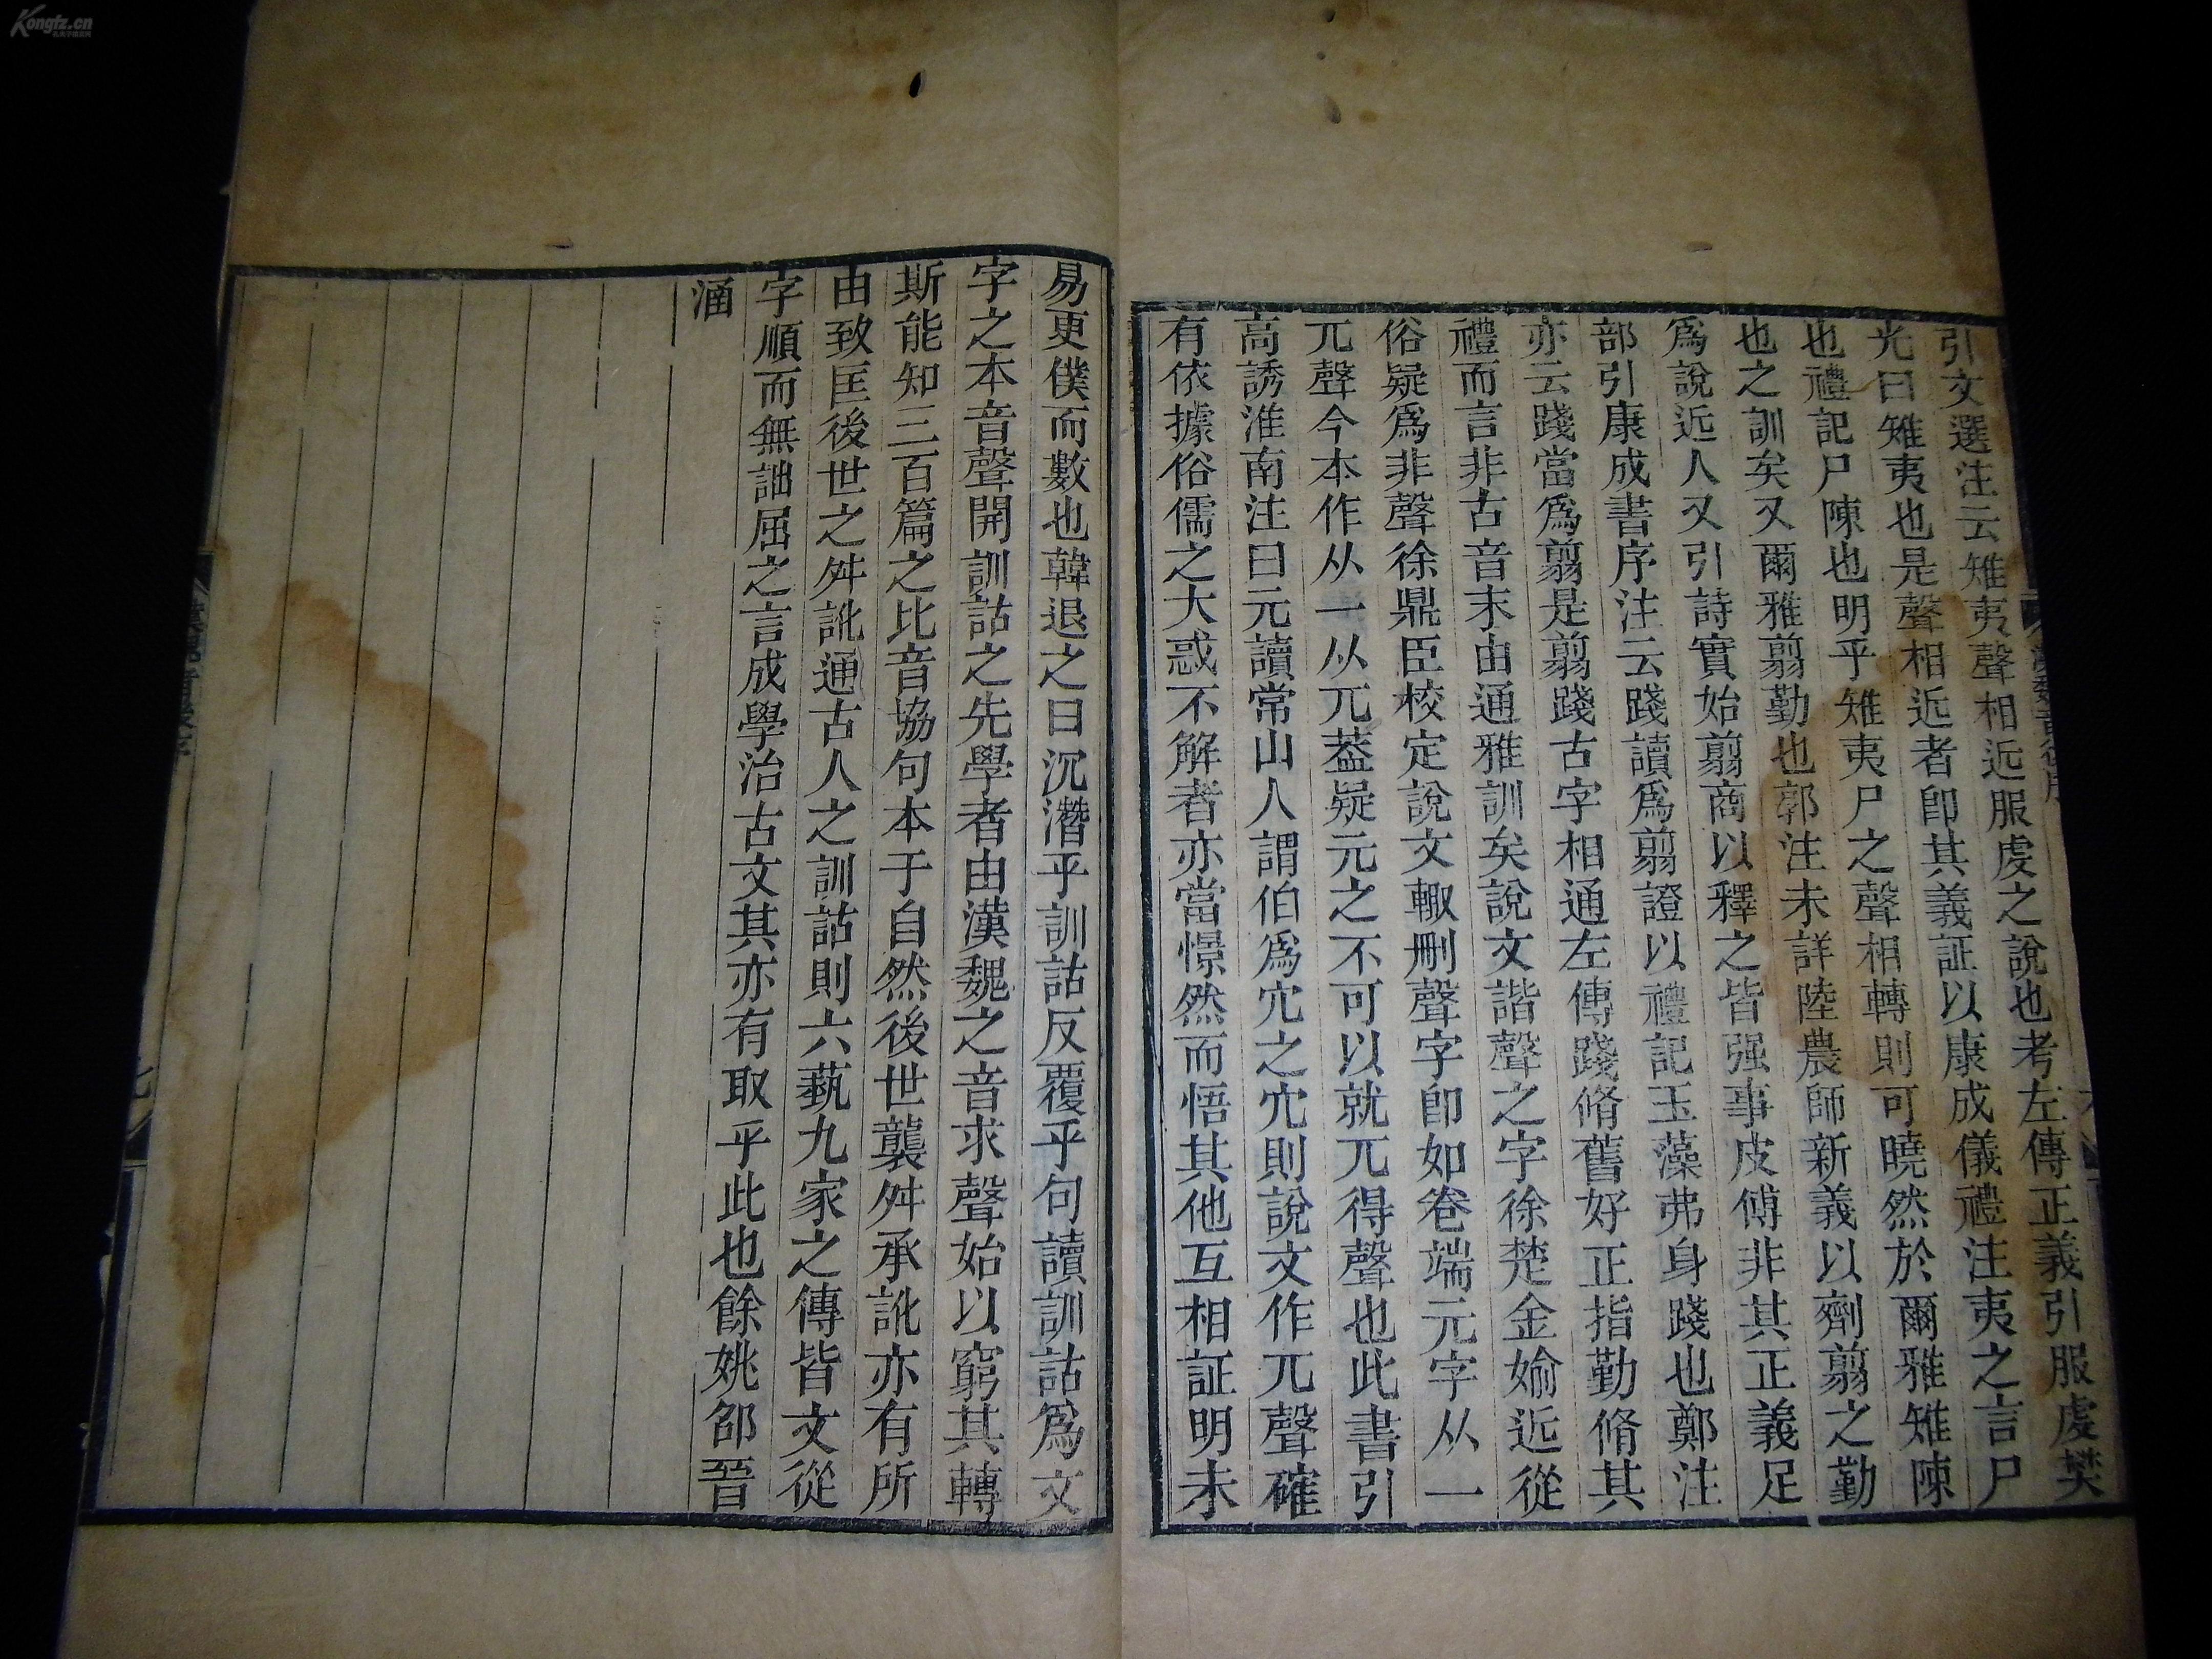 引文選注云雉夷聲相近服虔之說也考左傳正義引服虔樊
光曰雉夷也是聲相近者卽其義証以康成儀禮注夷之言尸
也禮記尸陳也明乎雉夷尸之聲相轉則可曉然於爾雅雉陳
也之訓矣又爾雅翦勤也郭注未詳陸農師新義以劑翦之勤
爲說近人又引詩實始翦商以釋之皆强事皮傅非其正義足
部引康成書序注云踐讀爲翦證以禮記玉藻弗身踐也鄭注
亦云踐當爲翦是翦踐古字相通左傳踐脩舊好正指勤脩其
禮而言非古音末由通雅訓矣說文諧聲之字徐楚金媮近從
俗疑爲非聲徐鼎臣校定說文輙刪聲字卽如卷端元字从一
兀聲今本作从一从兀葢疑元之不可以就兀得聲也此書引
高誘淮南注曰元讀常山人謂伯爲穴之穴則說文作兀聲確
有依據俗儒之大惑不解者亦當憬然而悟其他互相証明未
易更僕而數也韓退之曰沉潛乎訓詁反覆乎句讀訓詁爲文
字之本音聲開訓詁之先學者由漢魏之音求聲始以窮其轉
斯能知三百篇之比音協句本于自然後世襲舛承訛亦有所
由致匡後世之舛訛通古人之訓詁則六蓺九家之傳皆文從
字順而無詘屈之言成學治古文其亦有取乎此也餘姚邵晉
涵
Kongfz.cn